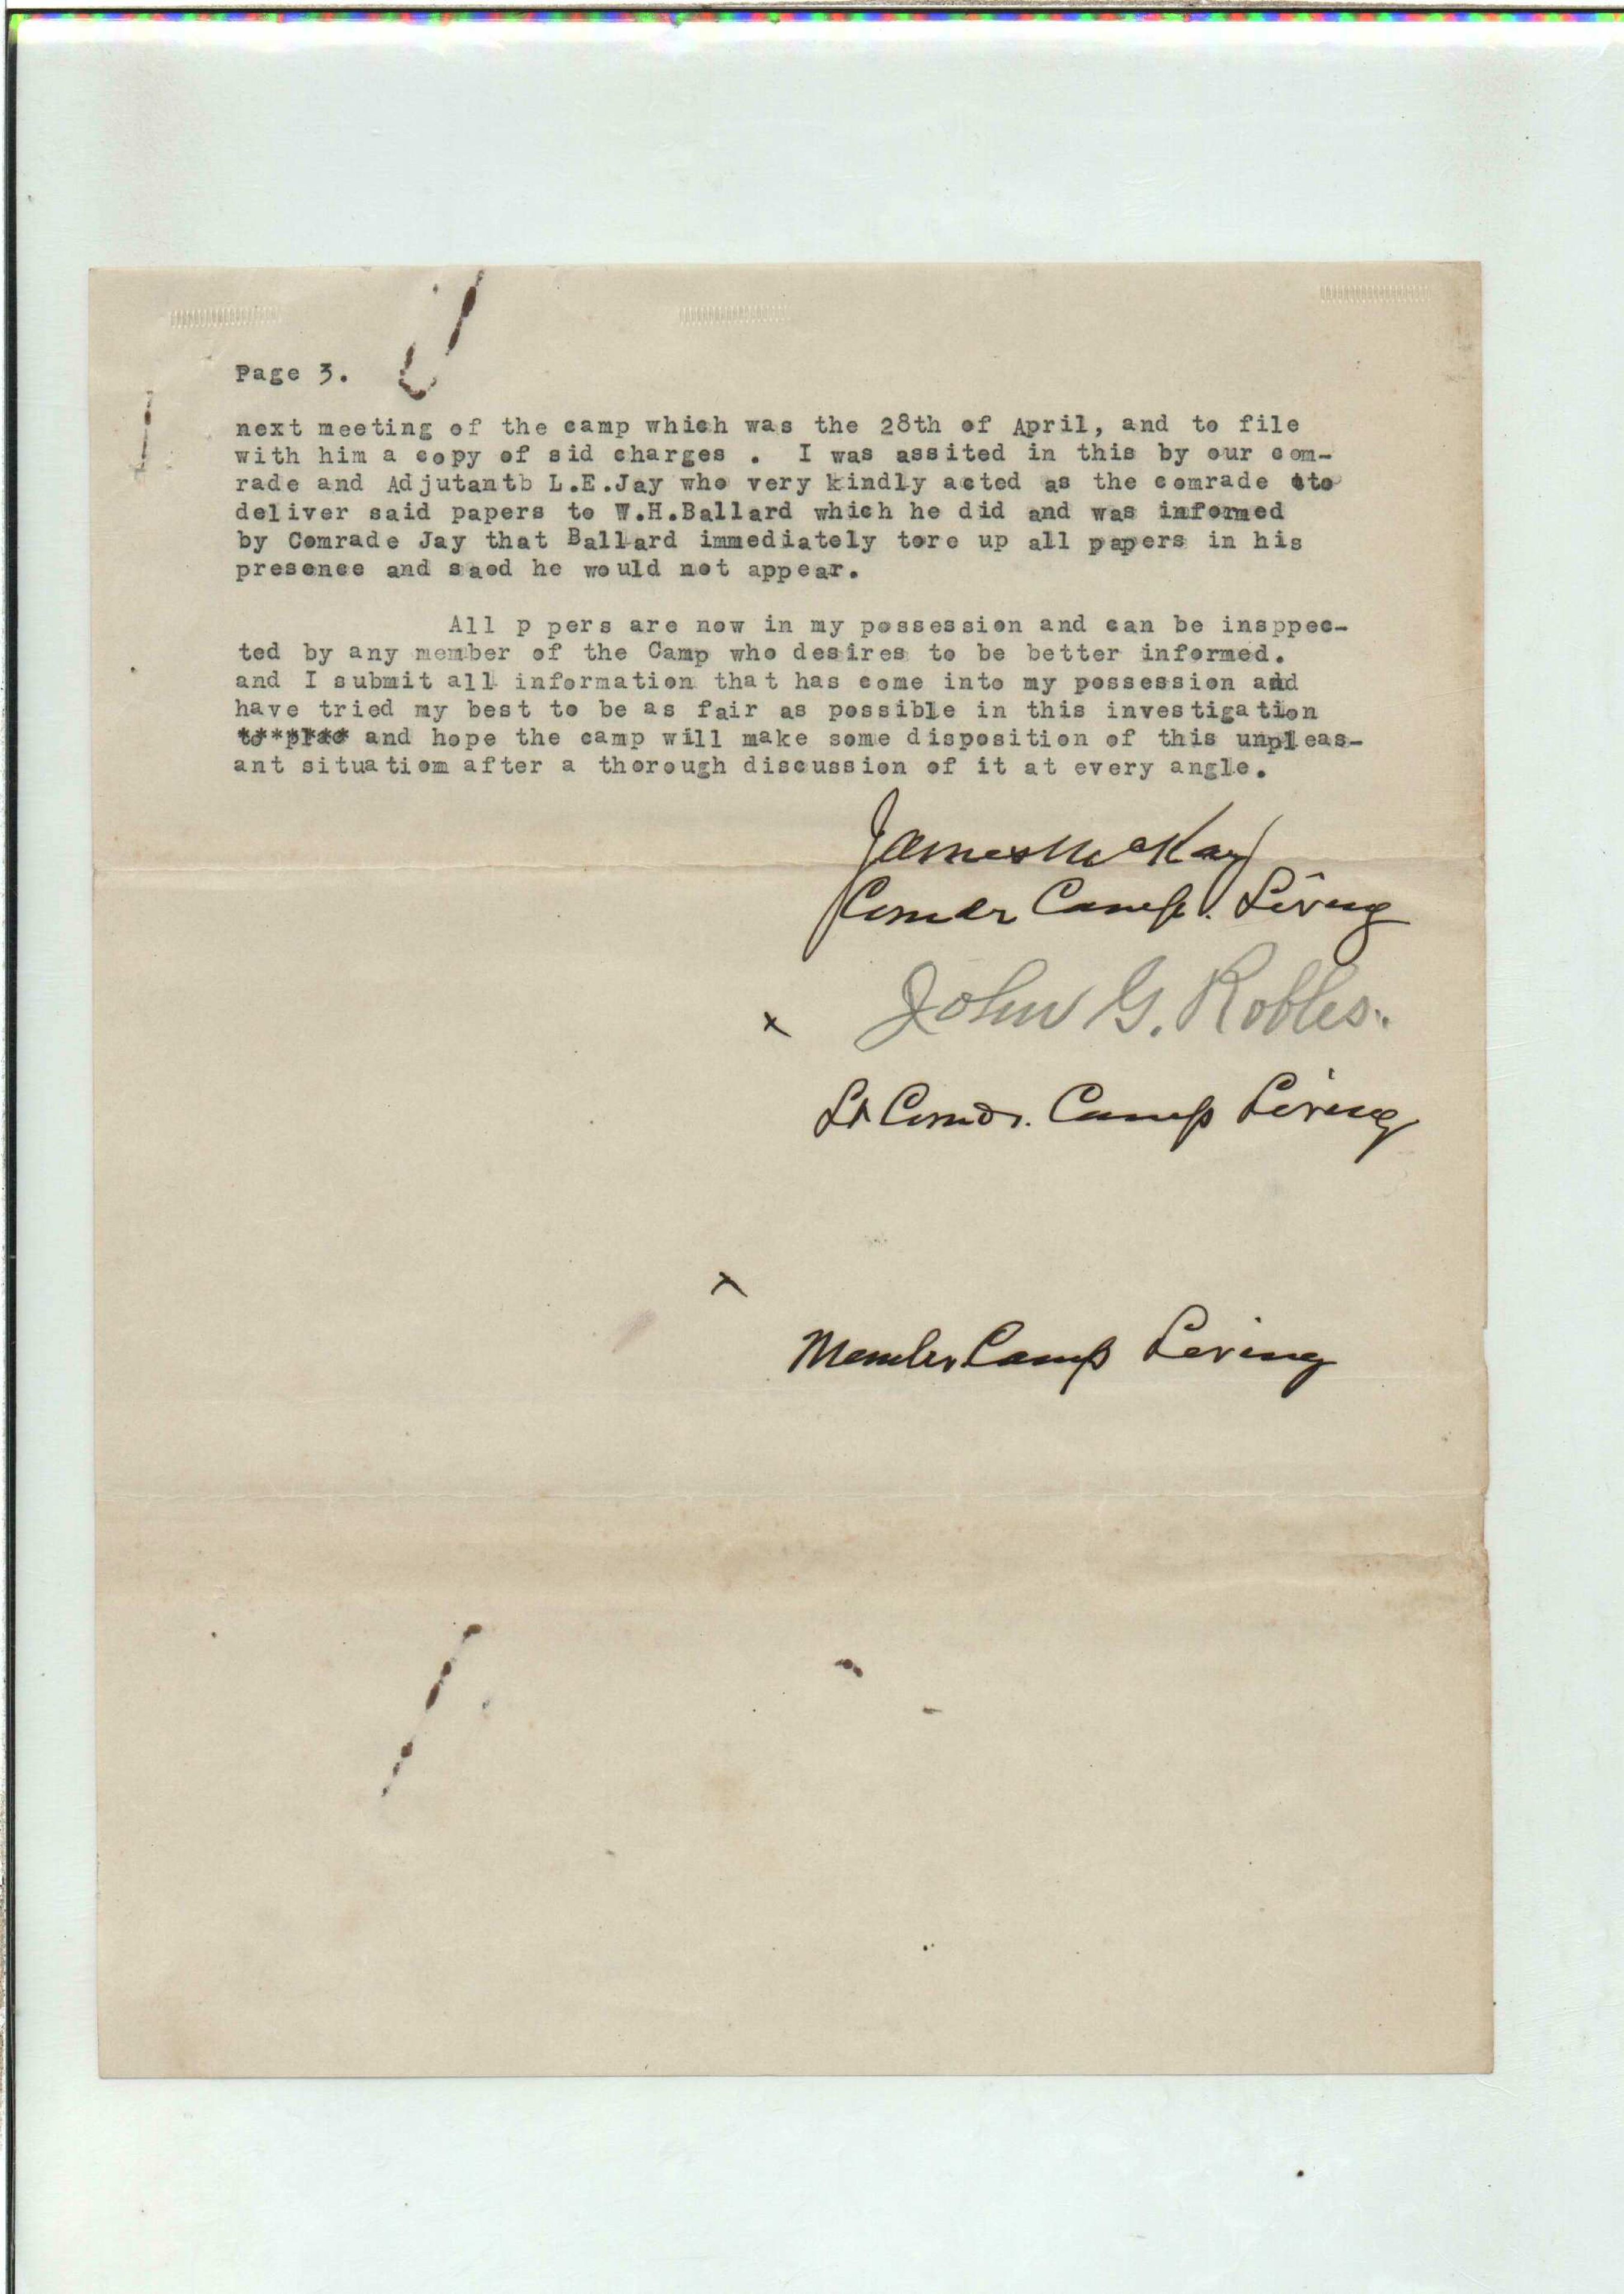 Page 3.
next meeting of the camp which was the 28th of April, and to file
with him a copy of sid charges . I was assited in this by our com-
rade and Adjutantb L.E.Jay who very kindly acted as the comrade to
deliver said papers to W.H.Ballard which he did and was informed
by Comrade Jay that Ballard immediately tore up all papers in his
presence and saod he would not appear.
All p pers are now in my possession and can be insppec-
ted by any member of the Camp who desires to be better informed.
and I submit all information that has come into my possession and
have tried my best to be as fair as possible in this investigation
and hope the camp will make some disposition of this unpleas-
ant situatiom after a thorough discussion of it at every angle.
James McKay
Comdr Camp. Living
x John G. Robles.
Lt Comdr. Camp Living
x
Member Camp Living